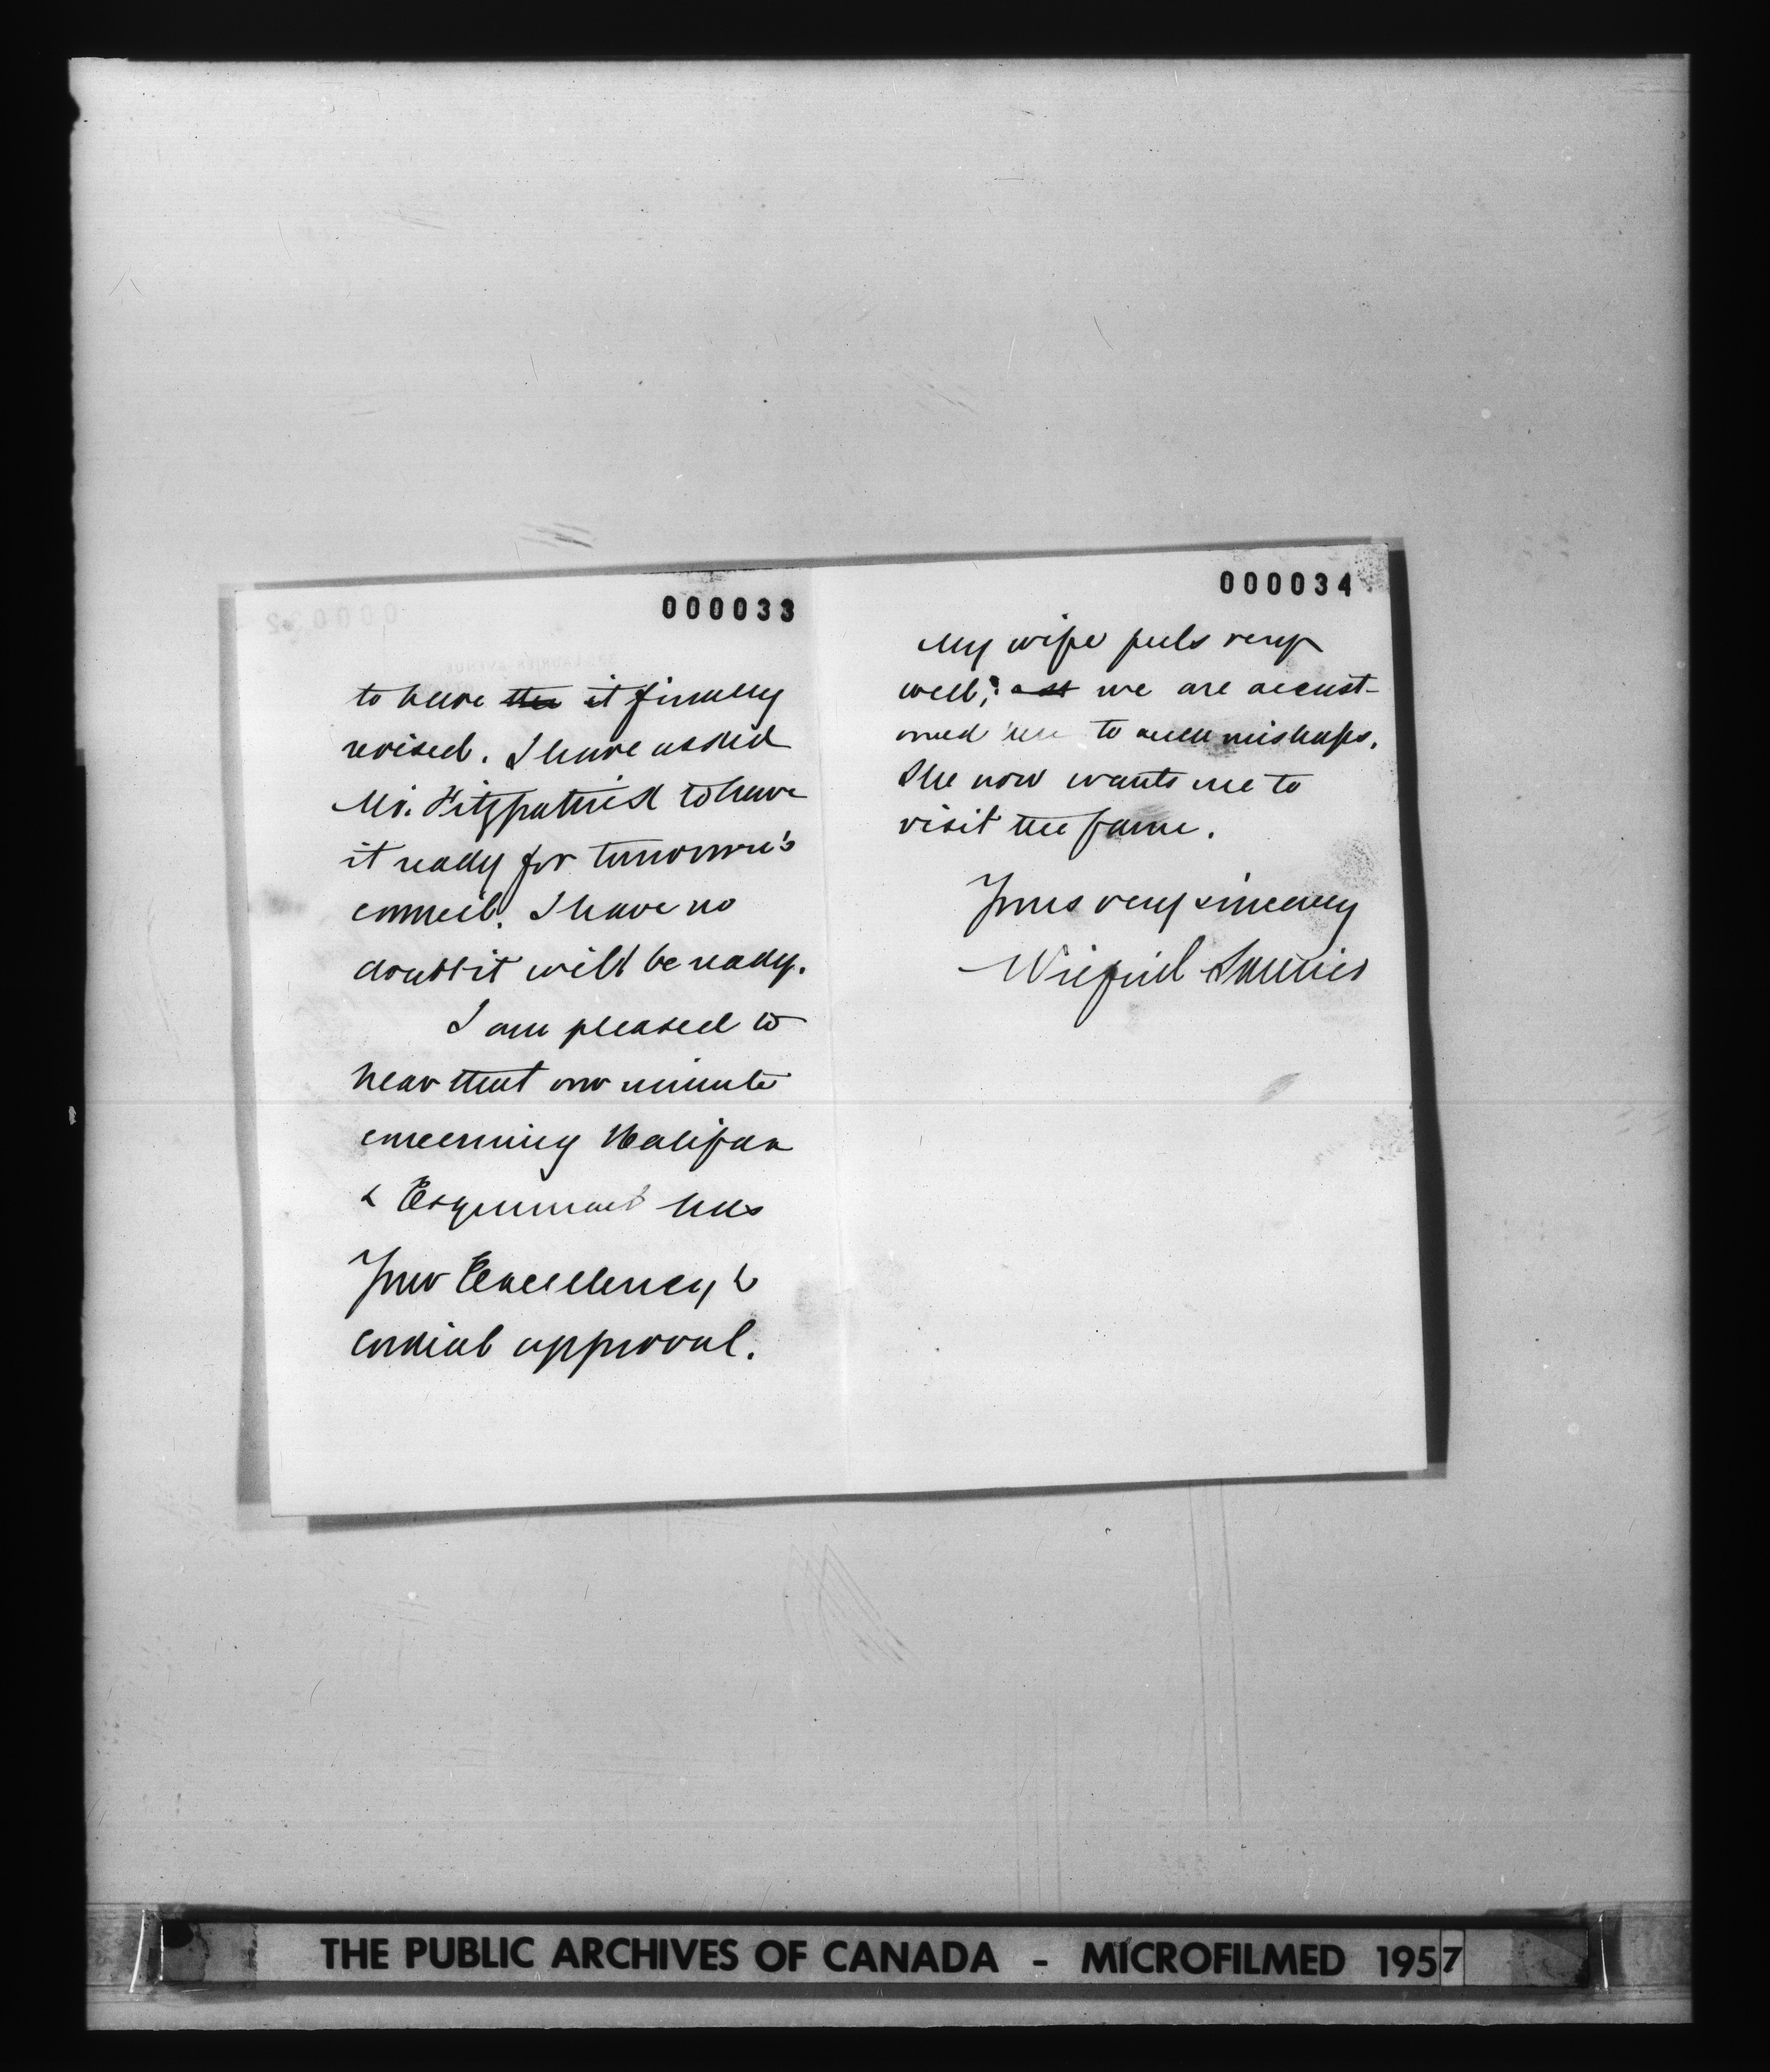 000033
to have the it finally
revised. I have asked
Mr. Fitzpatrick to have
it ready for tomorrow's
council. I have no
doubt it will be ready.
I am pleased to
hear that our minute
concerning Halifax
& Esquimalt has
Your Excellency's
cordial approval.
000034
My wife feels very
well; we are accust-
omed here to such mishaps.
She now wants me to
visit the farm.
Yours very sincerely
Wilfrid Laurier
THE PUBLIC ARCHIVES OF CANADA - MICROFILMED 1957